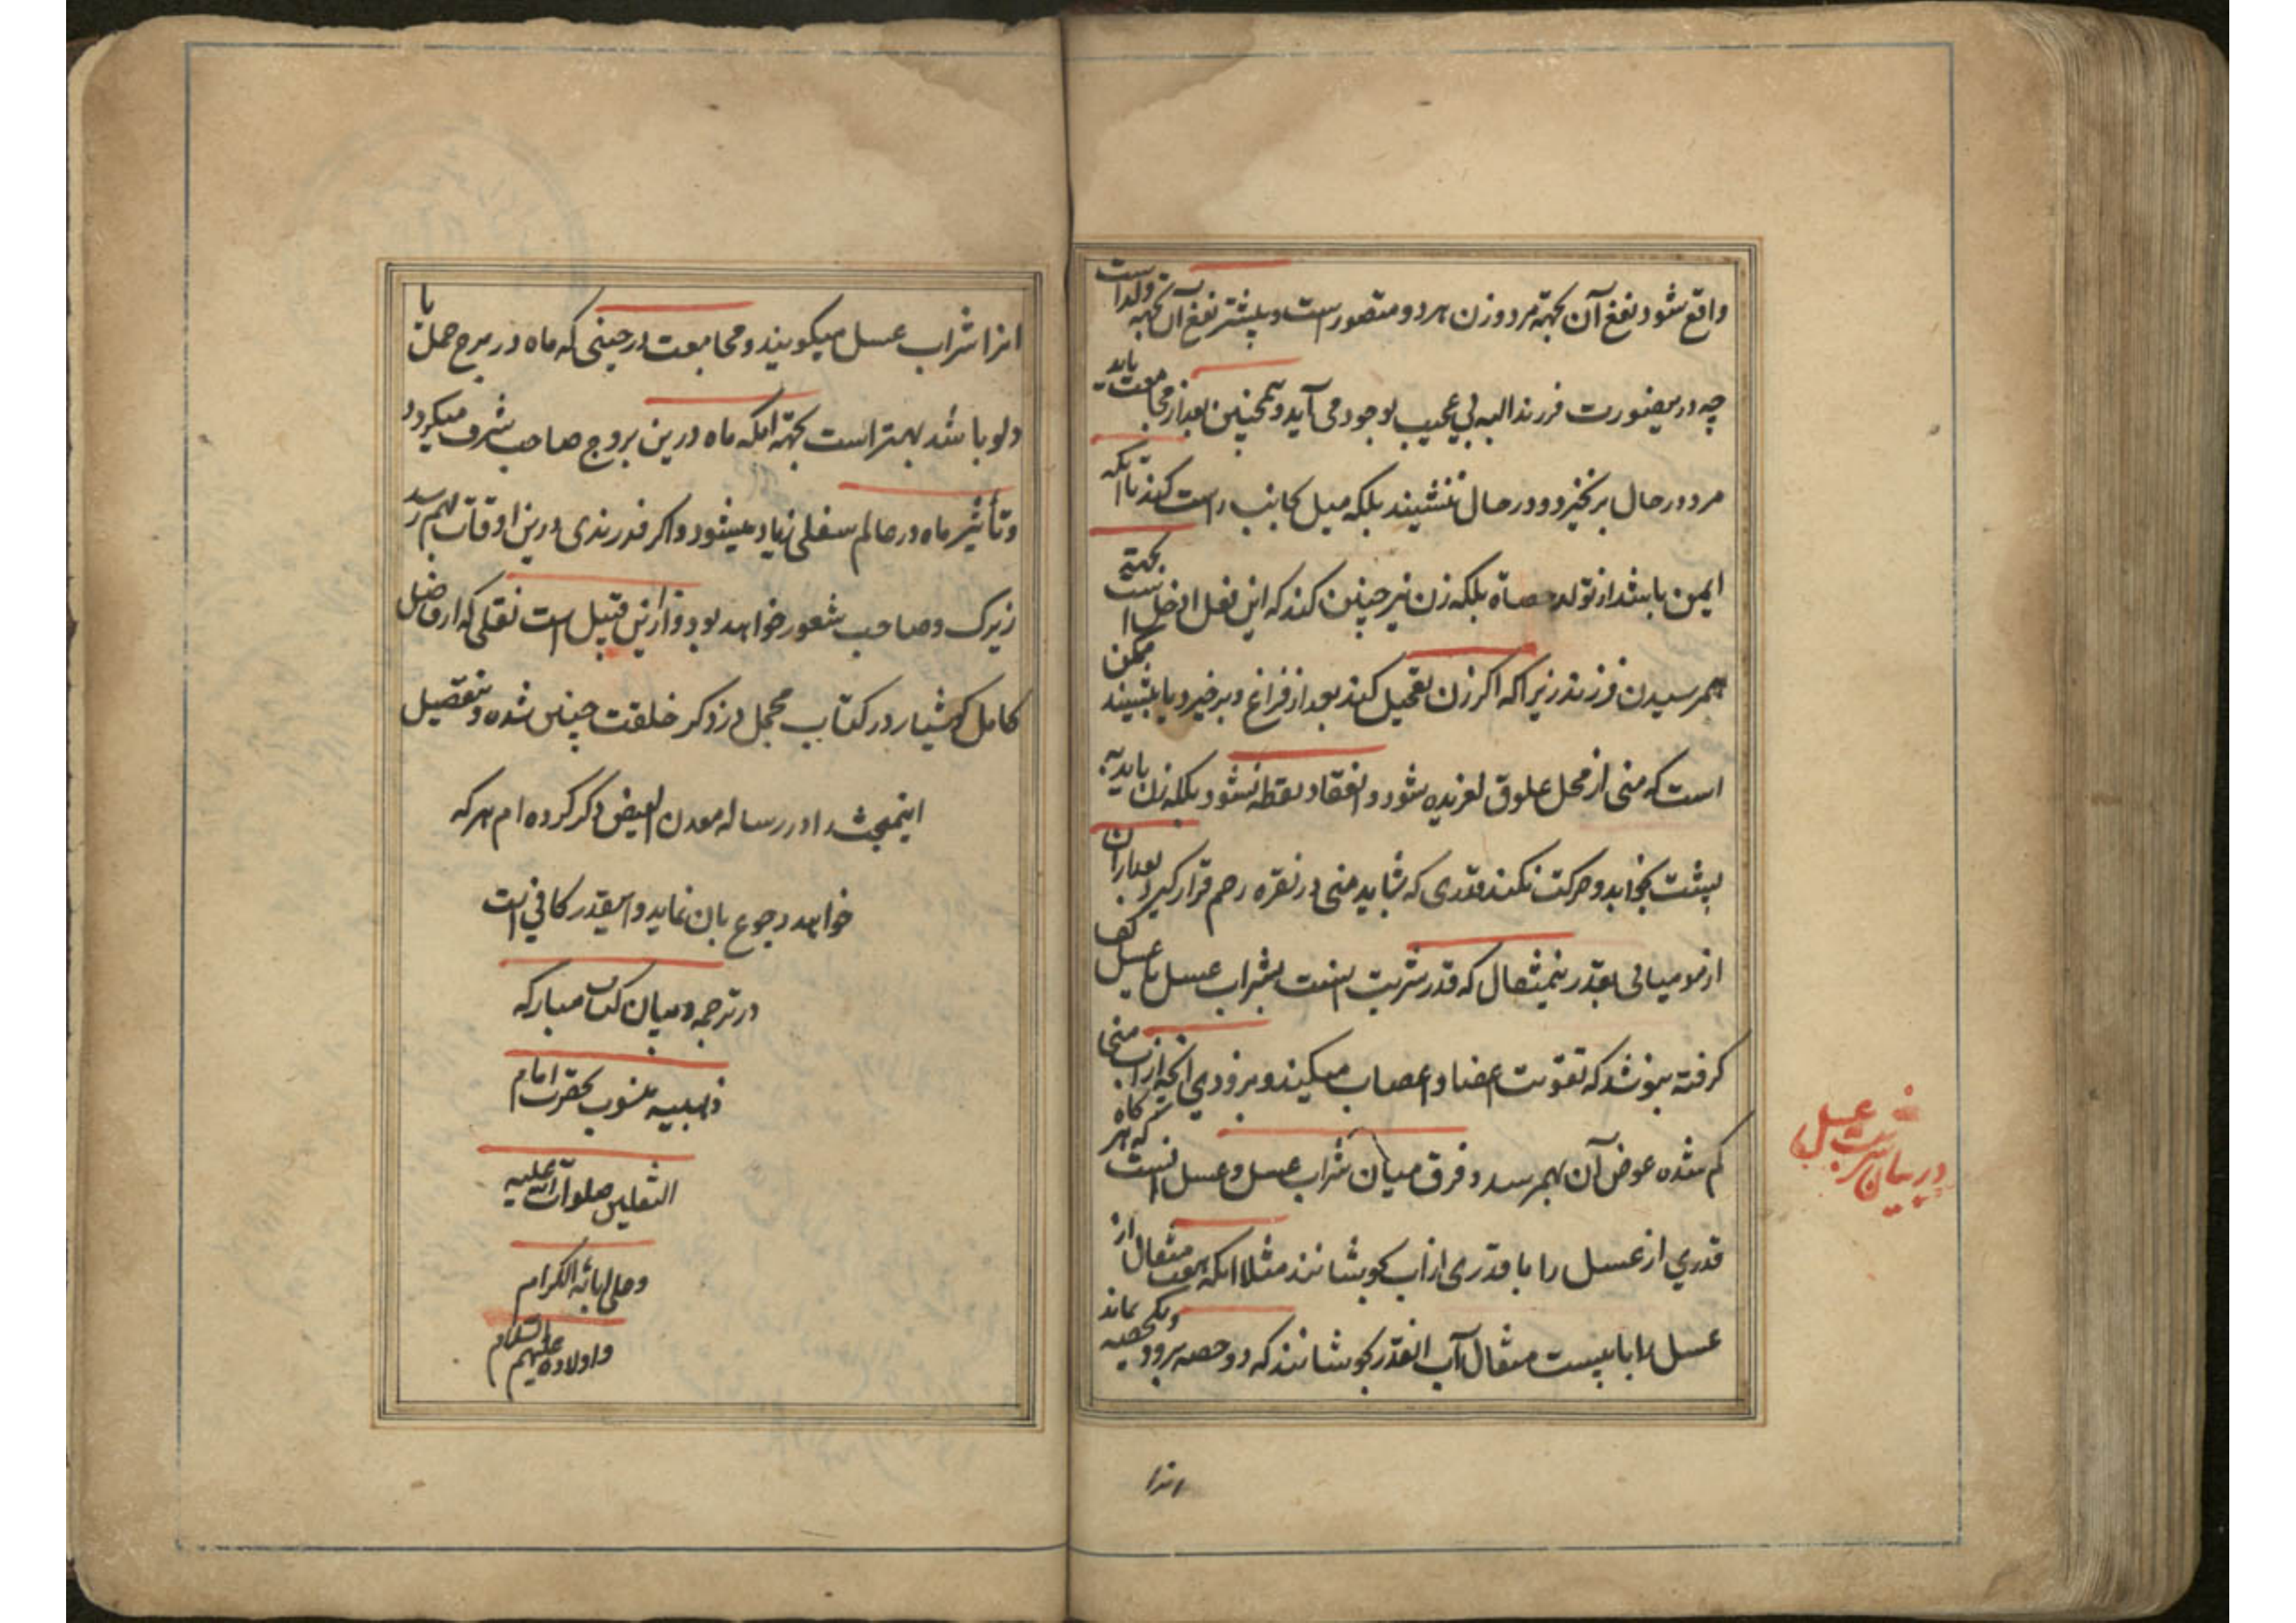 واقع شود نفع آن بجهته مرد و زن هر دو متصور است و بیشتر نفع آن بجهته ولد است
چه درینصورت فرزند البته بی عیب بوجود می آید و همچنین بعد از مجامعت باید
مرد در حال برنخیزد و در حال ننشیند بلکه میل بجانب راست کند تا انکه
ایمن باشد از تولد حصاة بلکه زن نیز چنین کند که این فعل ادخل است بجهته
بهمرسیدن فرزند زیرا که اکر زن تعجیل کند بعد از فراغ و برخیزد یا بنشیند ممکن
است که منی از محل علوق لغزیده شود و انعقاد نطفه نشود بلکه زن باید به
پشت بخوابد و حرکت نکند قدری که شاید منی در نقره رحم قرار کیرد بعد ازان
از مومیائی بقدر نیمثقال که قدر شربت است بشراب عسل یا عسل کف
کرفته بنوشد که تقویت اعضا و اعصاب میکند و بزودی انچه از آب منی
کم شده عوض آن بهمرسد و فرق میان شراب عسل و عسل انست که هر کاه
قدری از عسل را با قدری از اب بجوشانند مثلا انکه هفت مثقال از
عسل را با بیست مثقال آب انقدر بجوشانند که دو حصه برود و یکحصه بماند
در بیان شربت عسل
انرا
انرا شراب عسل میکویند و مجامعت در حینی که ماه در برج حمل یا
دلو باشد بهتر است بجهته انکه ماه درین بروج صاحب شرف میکردد
و تأثیر ماه در عالم سفلی زیاد میشود و اکر فرزندی درین اوقات بهم رسد
زیرک و صاحب شعور خواهد بود و ازین قبیل است نقلی که از فاضل
کامل کوشیار در کتاب مجمل در ذکر خلقت جنین شده و بتفصیل
اینمبحث را در رساله معدن الفیض ذکر کرده ام هر که
خواهد رجوع بان نماید و اینقدر کافی است
در ترجمه و میان کتاب مبارکه
ذهبیه منسوب بحضرت امام
الثقلین صلوات الله علیه
و علی ابائه الکرام
و اولاده علیهم السلام